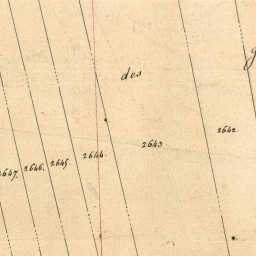 des
2642
2643
2644.
2645.
2646.
2647.